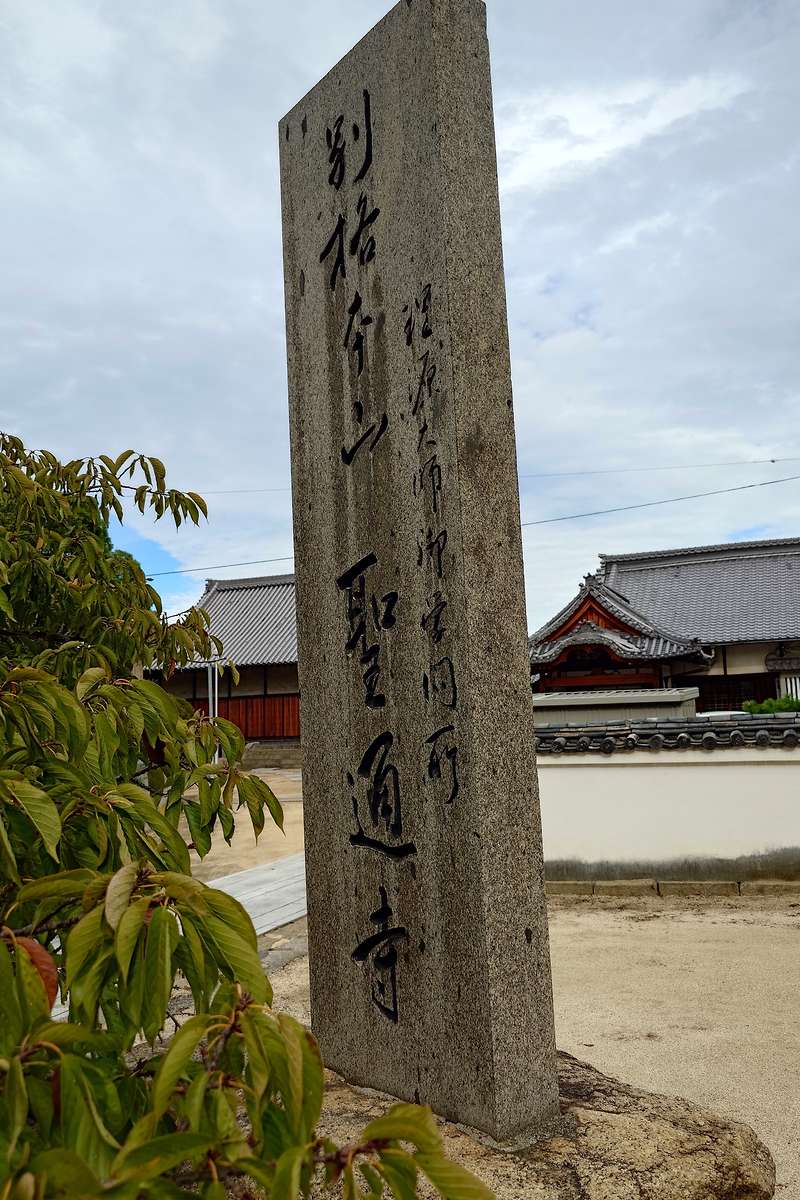 理源大師御学問所
別格本山 聖通寺